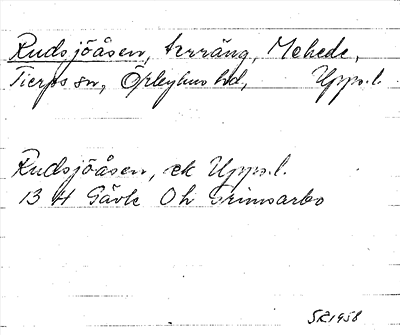 Rudsjöåsen, terräng, Mehede,
Tierps sn, Örbyhus hd, Upps.l.
Rudsjöåsen, ek Upps.l.
13 H Gävle Oh
SR 1958